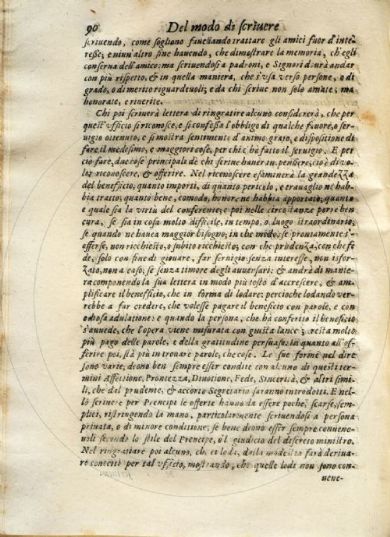 90 Del modo di scriuere
scriuendo, come sogliono fauellando trattare gli amici fuor d'inte-
resse, e niun'altro fine hauendo, che dimostrare la memoria, ch'egli
conserua dell'amico: ma scriuendosi a padroni, e Signori dourà andar
con più rispetto, & in quella maniera, che s'vsa verso persone, o di
grado, o di merito riguardeuoli; e da chi scriue non solo amate, ma
honorate, e riuerite.
Chi poi scriuerà lettera di ringratiare alcuno considererà, che per
quest'vfficio si riconosce, e si confessa l'obbligo di qualche fauore, o ser-
uigio ottenuto, e si mostra sentimento d'animo grato, e dispositione di
fare il medesimo, e maggior cose, per chi ci hà fatto il seruigio. E per
ciò fare, due cose principali dè chi scriue hauer in pensiero, ciò è di vo-
ler riconoscere, & offerire. Nel riconoscere esaminerà la grandezza
del beneficio, quanto importi, di quanto pericolo, e trauaglio ne hab-
bia tratto, quanto bene, comodo, honore ne habbia apportato, quanta
e quale sia la virtù del conferente; e poi nelle circostanze porre ben
cura, se sia in cosa molto difficile, in tempo, o luogo straordinario,
se quando ne hauea maggior bisogno, in che modo, se prontamente s'
offerse, non richiesto, o subito richiesto, con che prudenza, con che fe
de, solo con fine di giouare, far seruigio senza interesse, non isfor-
zato, non a caso, se senza timore degli auuersari: & andrà di manie-
ra componendo la sua lettera in modo più tosto d'accrescere, & am-
plificare il beneficio, che in forma di lodare: percioche lodando ver-
rebbe a far credere, che volesse pagare il beneficio con parole, e con
odiosa adulatione: e quando la persona, che hà conferito il beneficio
s'auuede, che l'opera viene misurata con giusta lance, resta molto
più pago delle parole, e della gratitudine persuaso. in quanto all'of-
ferire poi, stà più in trouare parole, che cose. Le sue forme nel dire
sono varie, deono ben sempre esser condite con alcuno di questi ter
mini Affettione, Prontezza, Diuotione, Fede, Sincerità, & altri simi-
li, che dal prudente, & accorto Segretario saranno introdotti. E nel-
lo scriuere per Prencipe le offerte hauranno essere poche, scarse, sem-
plici, ristringendo la mano, particolarmente scriuendosi a persona
priuata, o di minore conditione, se bene deono esser sempre conuene-
uoli secondo lo stile del Prencipe, o'l giudicio del discreto ministro.
Nel ringratiare poi alcuno, che ci loda, dalla modestia farà deriua-
re concetti per tal vfficio, mostrando, che quelle lodi non sono con
uene-